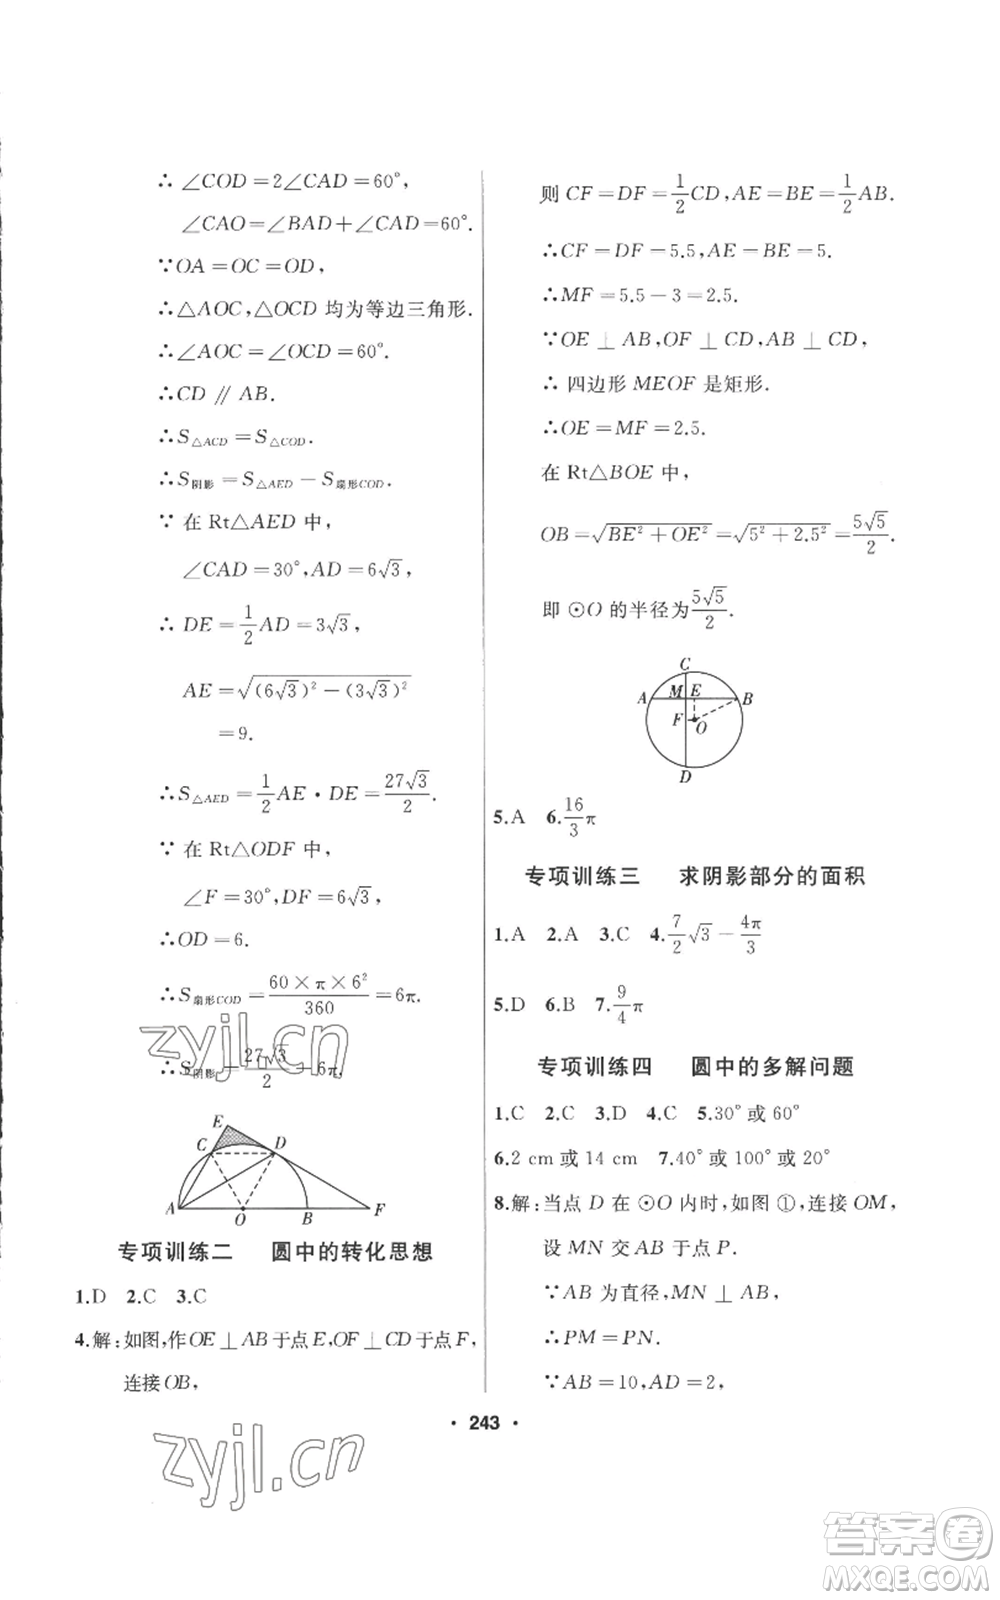 ∴∠COD=2∠CAD=60°,
∠CAO=∠BAD+∠CAD=60°.
∵OA=OC=OD,
∴△AOC,△OCD 均为等边三角形.
∴∠AOC=∠OCD=60°.
∴CD∥AB.
∴S△ACD=S△COD.
∴S阴影=S△AED−S扇形COD.
∵ 在 Rt△AED 中,
∠CAD=30°,AD=6√3,
∴ DE=1/2AD=3√3,
AE=√((6√3)²−(3√3)²)
=9.
∴S△AED=1/2AE·DE=27√3/2.
∵ 在 Rt△ODF 中,
∠F=30°,DF=6√3,
∴OD=6.
∴S扇形COD=60×π×6²/360=6π.
∴S阴影=27√3/2−6π.
E
C D
A O B F
专项训练二 圆中的转化思想
1.D 2.C 3.C
4.解:如图,作OE⊥AB于点E,OF⊥CD于点F,
连接OB,
则 CF=DF=1/2CD,AE=BE=1/2AB.
∴CF=DF=5.5,AE=BE=5.
∴MF=5.5−3=2.5.
∵OE⊥AB,OF⊥CD,AB⊥CD,
∴ 四边形 MEOF 是矩形.
∴OE=MF=2.5.
在 Rt△BOE 中,
OB=√(BE²+OE²)=√(5²+2.5²)=5√5/2.
即 ⊙O 的半径为5√5/2.
C
A M E B
F O
D
5.A 6.16/3π
专项训练三 求阴影部分的面积
1.A 2.A 3.C 4.7/2√3−4π/3
5.D 6.B 7.9/4π
专项训练四 圆中的多解问题
1.C 2.C 3.D 4.C 5.30°或60°
6.2 cm或14 cm 7.40°或100°或20°
8.解:当点 D 在⊙O内时,如图①,连接OM,
设 MN 交 AB 于点 P.
∵AB 为直径,MN⊥AB,
∴PM=PN.
∵AB=10,AD=2,
·243·
zyjl.cn
zyjl.cn
答案圈
MXQE.COM